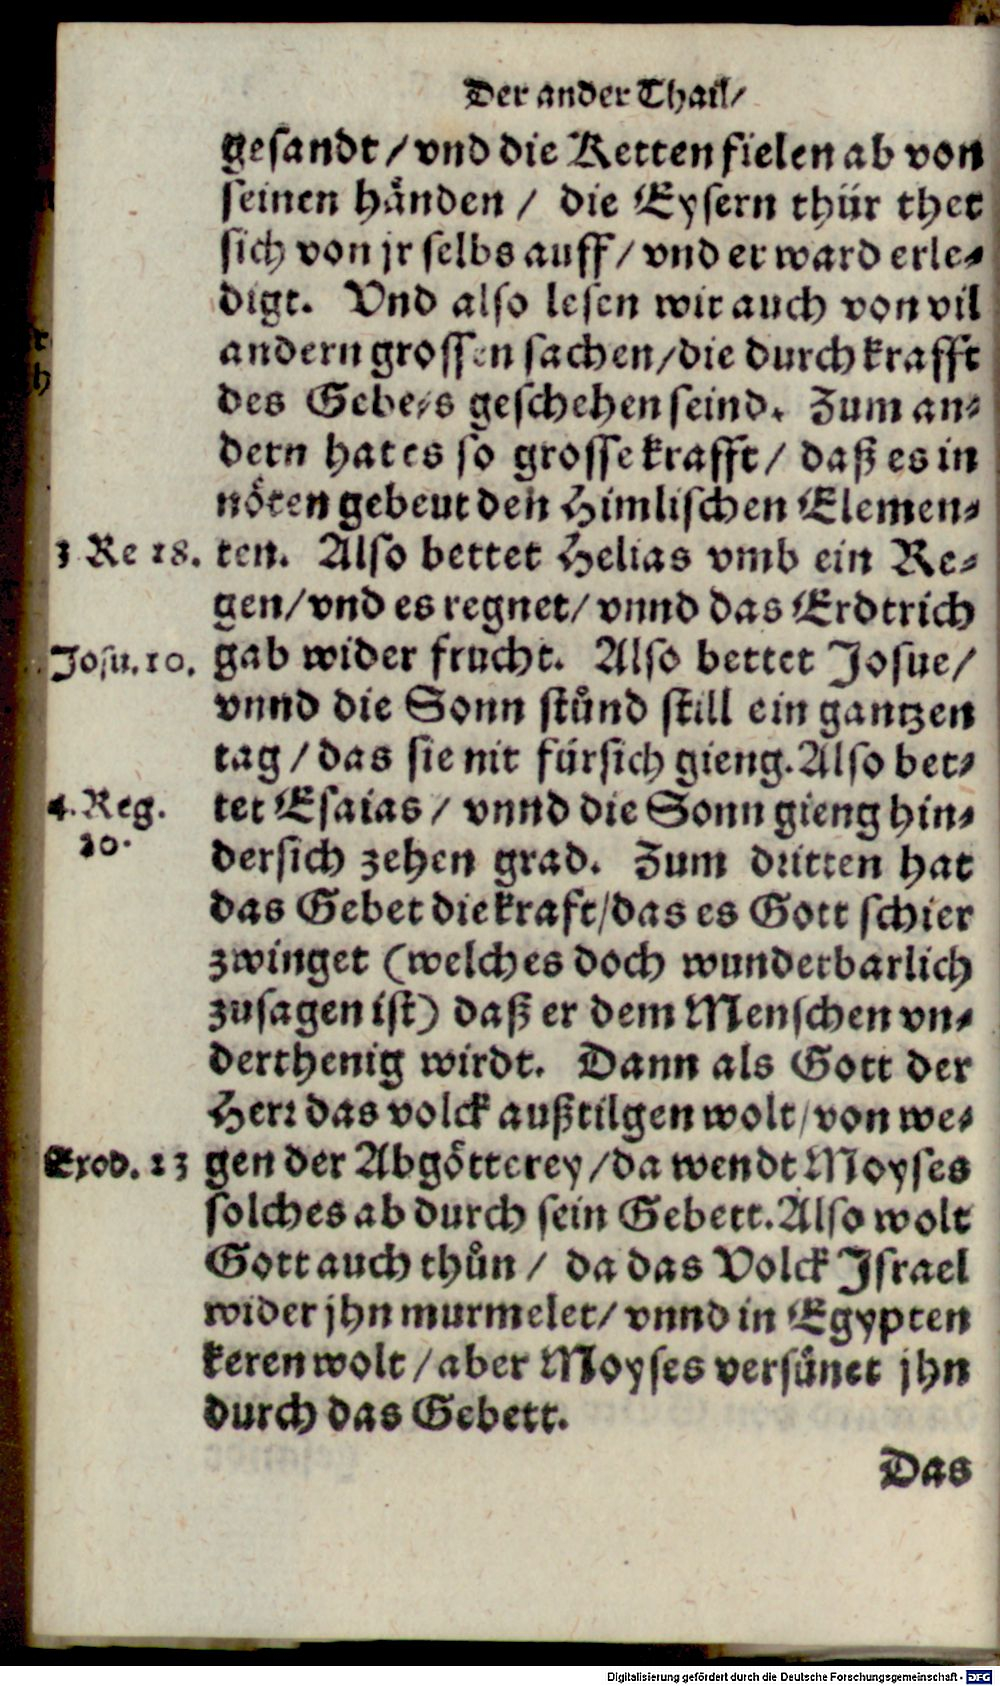 Der ander Thail/
gesandt / vnd die Ketten fielen ab von
seinen hånden / die Eysern thür thet
sich von jr selbs auff / vnd er ward erle-
digt. Vnd also lesen wir auch von vil
andern grossen sachen / die durch krafft
des Gebets geschehen seind. Zum an-
dern hat es so grosse krafft / daß es in
nöten gebeut den Himlischen Elemen-
3 Re 18. ten. Also bettet Helias vmb ein Re-
gen / vnd es regnet / vnnd das Erdtrich
Josu. 10. gab wider frucht. Also bettet Josue /
vnnd die Sonn stůnd still ein gantzen
tag / das sie nit fürsich gieng. Also bet-
4. Reg. tet Esaias / vnnd die Sonn gieng hin-
20. dersich zehen grad. Zum dritten hat
das Gebet die kraft / das es Gott schier
zwinget (welches doch wunderbarlich
zusagen ist) daß er dem Menschen vn-
derthenig wirdt. Dann als Gott der
Herr das volck außtilgen wolt / von we-
Exod. 23 gen der Abgötterey / da wendt Moyses
solches ab durch sein Gebett. Also wolt
Gott auch thůn / da das Volck Jsrael
wider jhn murmelet / vnnd in Egypten
keren wolt / aber Moyses versůnet jhn
durch das Gebett.
Das
Digitalisierung gefördert durch die Deutsche Forschungsgemeinschaft - DFG